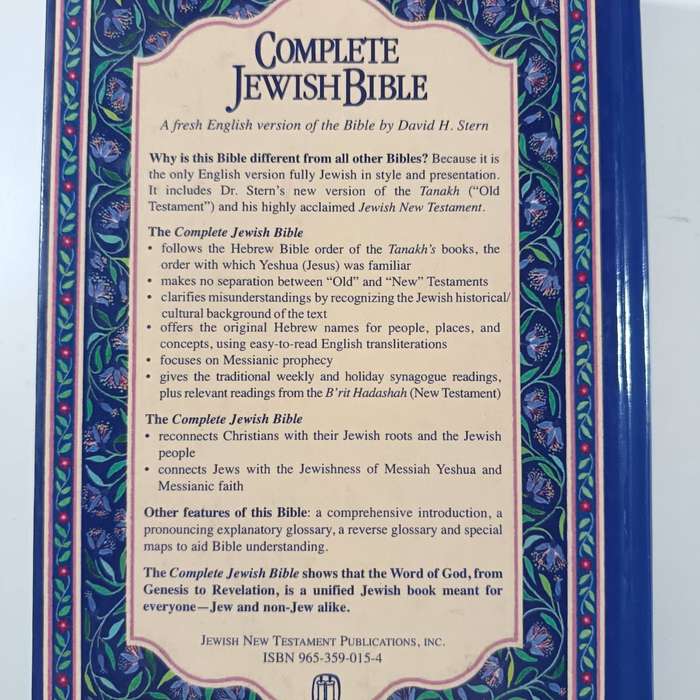 COMPLETE
JEWISH BIBLE
A fresh English version of the Bible by David H. Stern
Why is this Bible different from all other Bibles? Because it is
the only English version fully Jewish in style and presentation.
It includes Dr. Stern's new version of the Tanakh ("Old
Testament") and his highly acclaimed Jewish New Testament.
The Complete Jewish Bible
• follows the Hebrew Bible order of the Tanakh's books, the
order with which Yeshua (Jesus) was familiar
• makes no separation between "Old" and "New" Testaments
• clarifies misunderstandings by recognizing the Jewish historical/
cultural background of the text
• offers the original Hebrew names for people, places, and
concepts, using easy-to-read English transliterations
• focuses on Messianic prophecy
• gives the traditional weekly and holiday synagogue readings,
plus relevant readings from the B'rit Hadashah (New Testament)
The Complete Jewish Bible
• reconnects Christians with their Jewish roots and the Jewish
people
• connects Jews with the Jewishness of Messiah Yeshua and
Messianic faith
Other features of this Bible: a comprehensive introduction, a
pronouncing explanatory glossary, a reverse glossary and special
maps to aid Bible understanding.
The Complete Jewish Bible shows that the Word of God, from
Genesis to Revelation, is a unified Jewish book meant for
everyone—Jew and non-Jew alike.
JEWISH NEW TESTAMENT PUBLICATIONS, INC.
ISBN 965-359-015-4